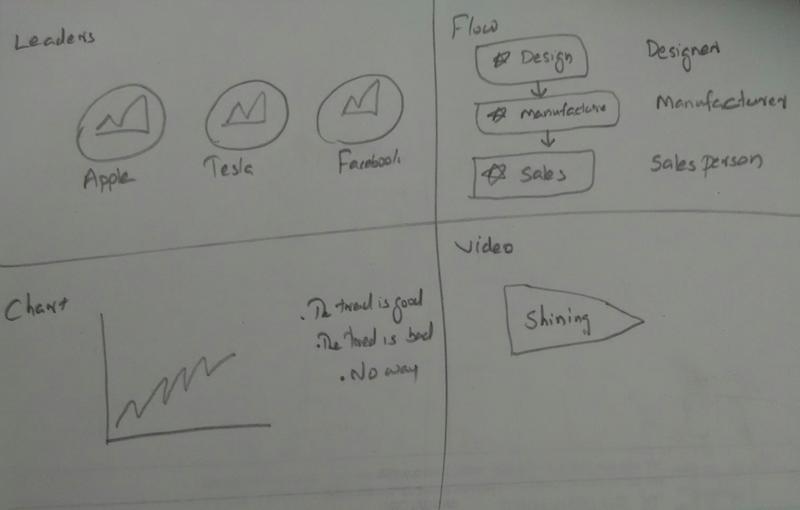 Leaders
Apple
Tesla
Facebook
Flow
Design
Designer
Manufacture
Manufacturer
Sales
Sales person
Chart
. The trend is good
. The trend is bad
. No way
Video
Shining